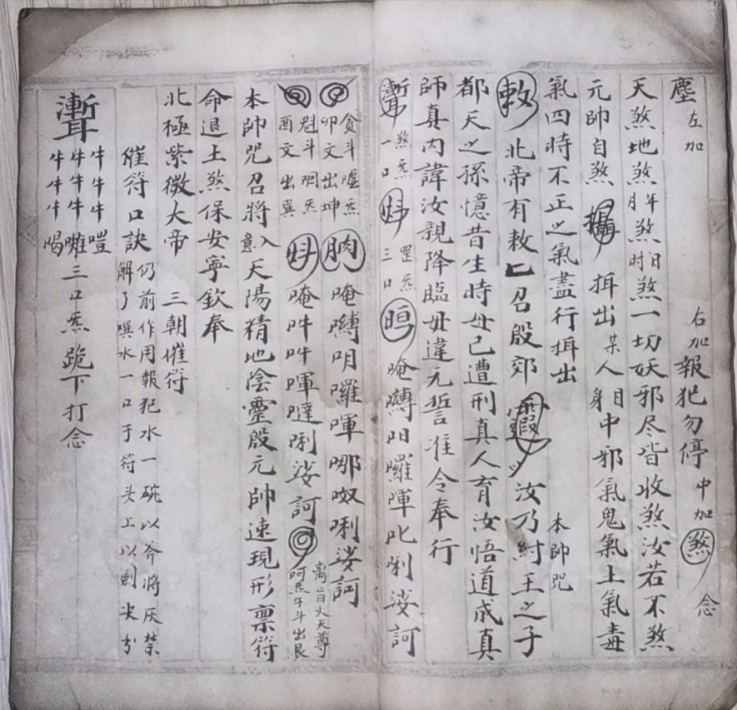 塵 左加 右加 報犯勿停 中加 煞 念
天煞地煞年煞月煞日煞時煞一切妖邪尽皆收煞汝若不煞
元帥自煞 揖出某人身中邪氣鬼氣土氣毒
氣四時不正之氣盡行揖出 本帥咒
敕 北帝有敕 召殷郊 汝乃紂王之子
都天之孫憶昔生時母已遭刑真人育汝悟道成真
師真內諱汝親降臨毋違元誓准令奉行
煞炁一口 罡炁三口 唵嚩吅囉㖕叱唎娑訶
貪斗噓炁 卯文出坤 唵嚩明囉㖕哪呶唎娑訶
魁斗呬炁 酉文出巽 唵吽吽㖕噠唎娑訶 离旨火天尊 呵炁午斗出艮
本帥咒召將入意天陽精地陰靈殷元帥速現形稟符
命退土煞保安寧欽奉
北極紫微大帝 三朝催符
催符口訣 仍前作用報犯水一碗以斧將灰禁
解了噀水一口于符头上以劍尖书
牛牛牛 牛牛牛 牛牛牛 三口炁跪下打念